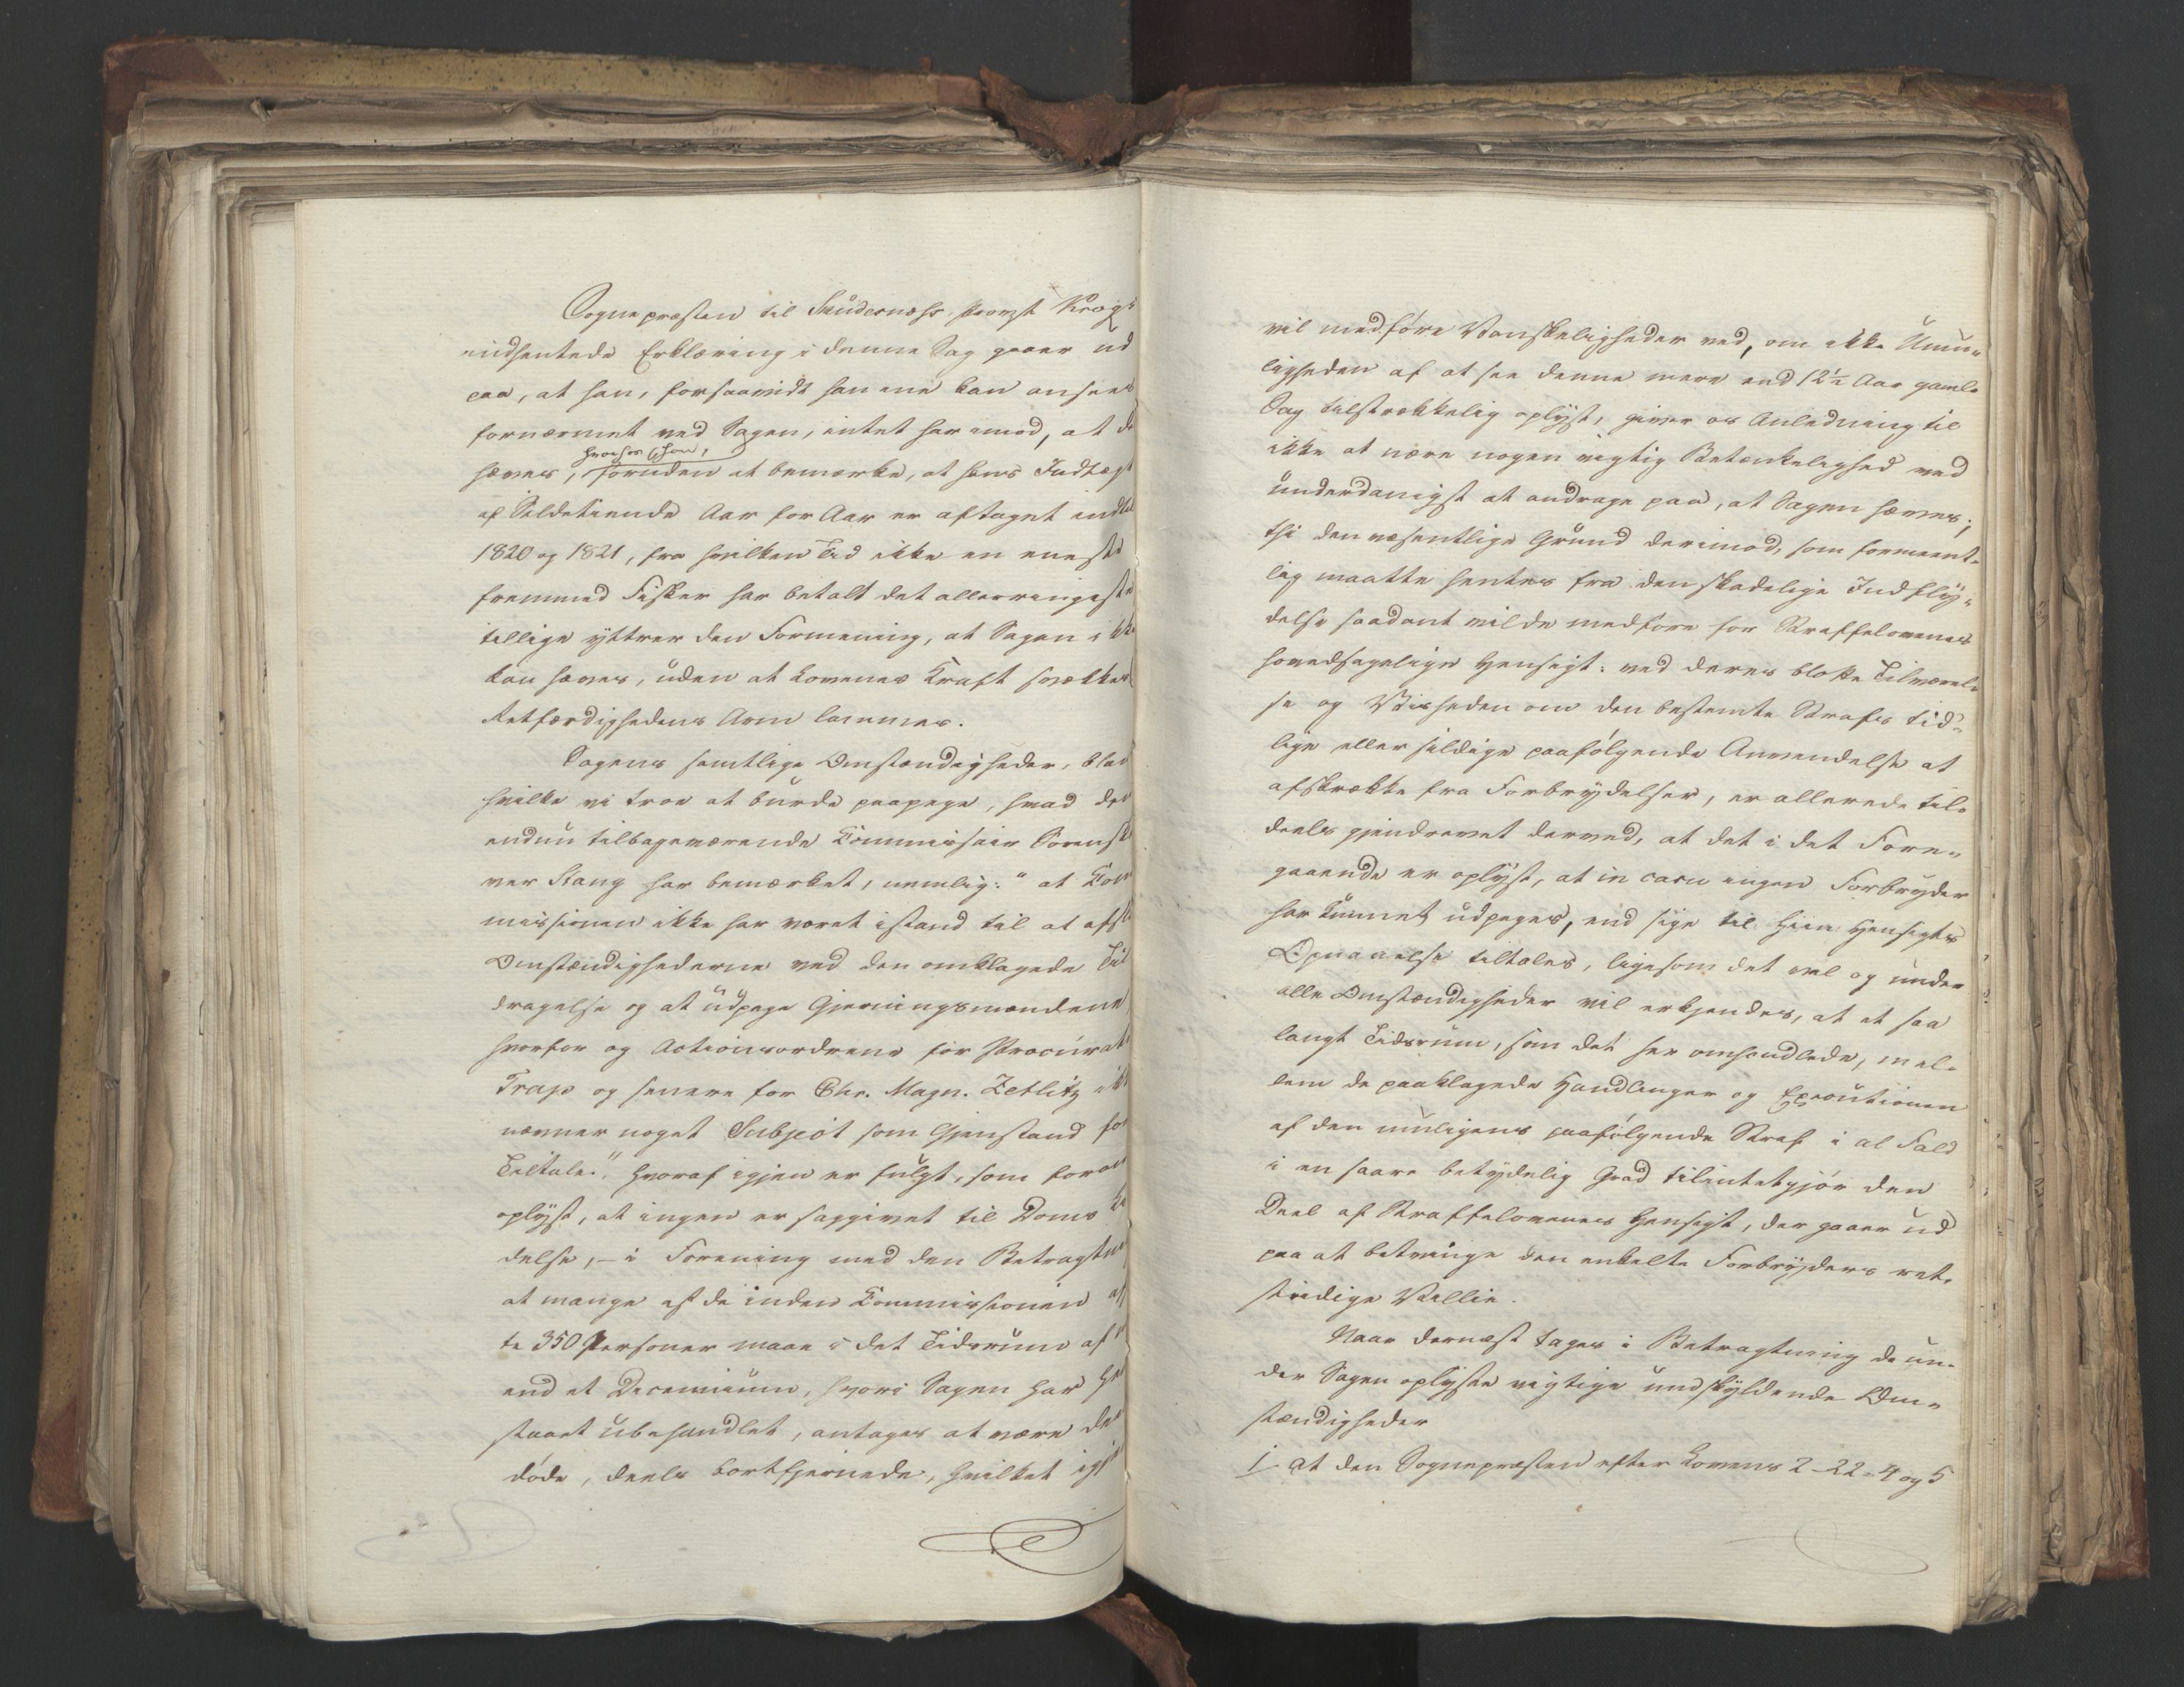 Sognepræsten til Skudesnæss Provst Krogs
indhentede Erklæring i denne Sag gaaer ud
paa, at han, forsaavidt han ene kan ansees
fornærmet ved Sagen, intet har imod, at de
hæves,
hvorhos han,
foruden at bemærke, at hans Indtægt
af Sildetiende Aar for Aar er aftaget indtil
1820 og 1821, fra hvilken Tid ikke en eneste
fremmed Fisker har betalt det allerringeste
tillige yttrer den Formening, at Sagen ikke
kan hæves, uden at Lovenes Kraft svækkes
Retfærdighedens Arm lammes.
Sagens samtlige Omstændigheder, bland
hvilke vi troe at burde paapege, hvad den
endnu tilbageværende Commissair Sorenskri
ver Stang har bemærket, nemlig: "at Com
missionen ikke har været istand til at
Omstændighederne ved den omklagede Til
dragelse og at udpege Gjerningsmændene,
hvorfor og Actionsordrene for Procurator
Trap og senere for Chr. Magn. Zetlitz ikke
nævner noget Subject som Gjenstand for
Tiltale." hvoraf igjen er fulgt, som foran
oplyst, at ingen er saggivet til Doms
delse, – i Forening med den Betragtning
at mange af de inden Commissionen
te 350 Personer maae i det Tidsrum af
end et Decennium, hvori Sagen har
staaet ubehandlet, antages at være deels
døde, deels bortfjernede, hvilket igjen
vil medføre Vanskeligheder ved, om ikke Umu-
ligheden af at see denne mere end 12½ Aar gamle
Sag tilstrækkelig oplyst, giver os Anledning til
ikke at nære nogen vigtig Betænkelighed ved
underdanigst at andrage paa, at Sagen hæves;
thi den væsentlige Grund derimod, som formeent-
lig maatte hentes fra den skadelige Indfly-
delse saadant vilde medføre for Straffelovenes
hovedsagelige Hensigt: ved deres blotte Tilværel-
se og Visheden om den bestemte Strafs tid-
lige eller sildige paafølgende Anvendelse at
afskrække fra Forbrydelser, er allerede til-
deels gjendrevet derved, at det i det Fore-
gaaende er oplyst, at in casu ingen Forbryder
har kunnet udpeges, end sige til hiin Hensigts
Opnaaelse tiltales, ligesom det vel og under
alle Omstændigheder vil erkjendes, at et saa
langt Tidsrum, som det her omhandlede, mel-
lem de paaklagede Handlinger og Executionen
af den muligens paafølgende Straf i al Fald
i en saare betydelig Grad tilintetgjør den
Deel af Straffelovenes Hensigt, der gaaer ud
paa at betvinge den enkelte Forbryders ret-
stridige Villie.
Naar dernæst tages i Betragtning de un-
der Sagen oplyste vigtige undskyldende Om-
stændigheder
1. at den Sognepræsten efter Lovens 2-22-4 og 5